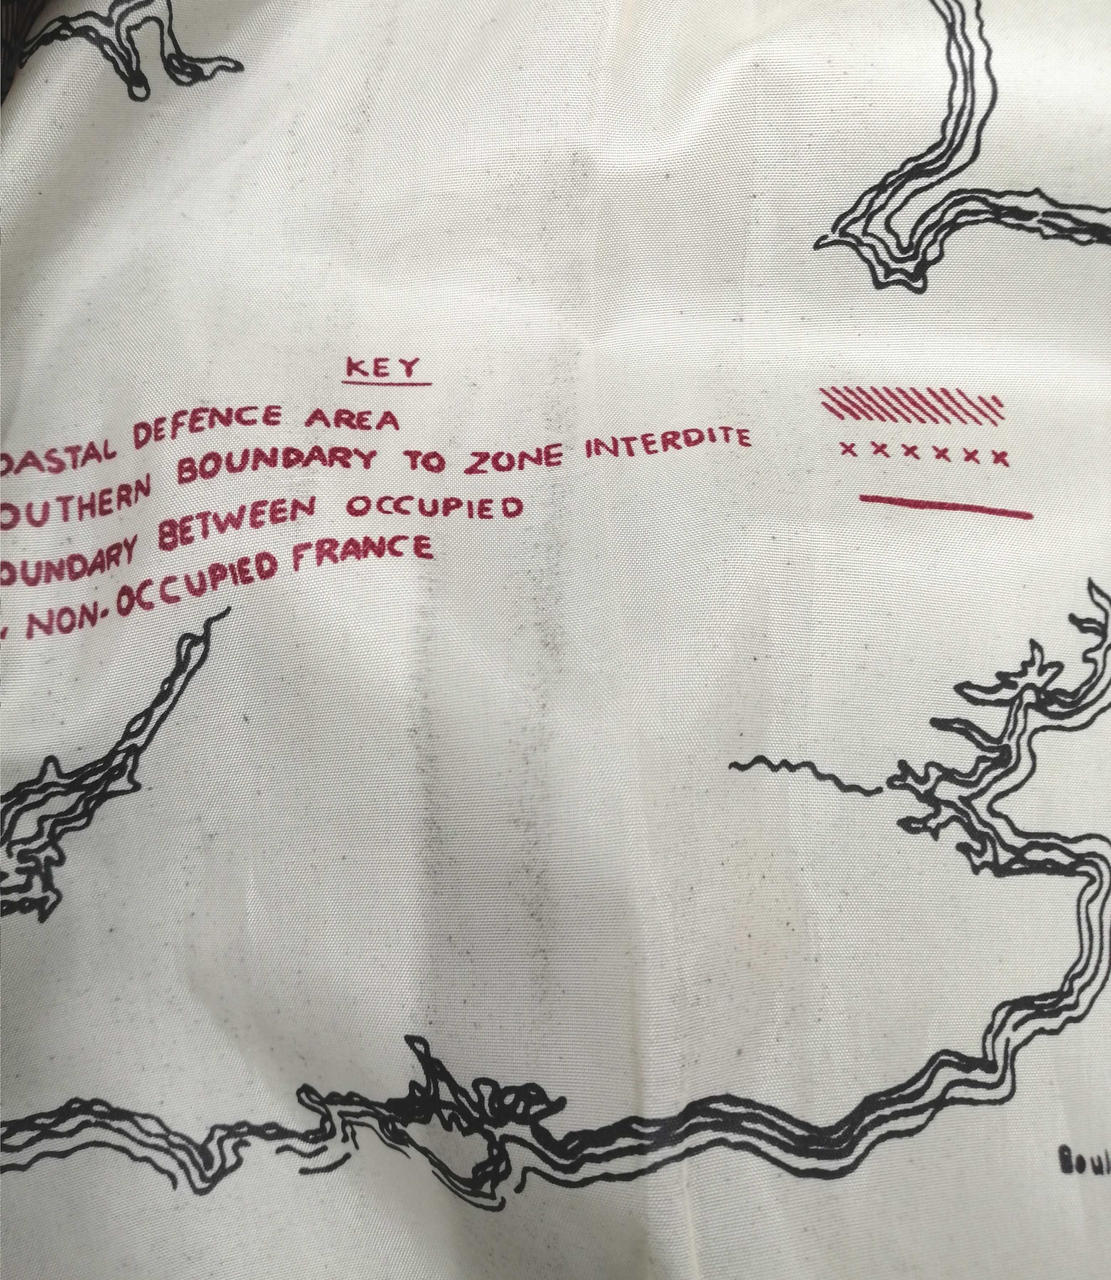 KEY
OASTAL DEFENCE AREA
OUTHERN BOUNDARY TO ZONE INTERDITE
x x x x x x
OUNDARY BETWEEN OCCUPIED
NON-OCCUPIED FRANCE
Boul